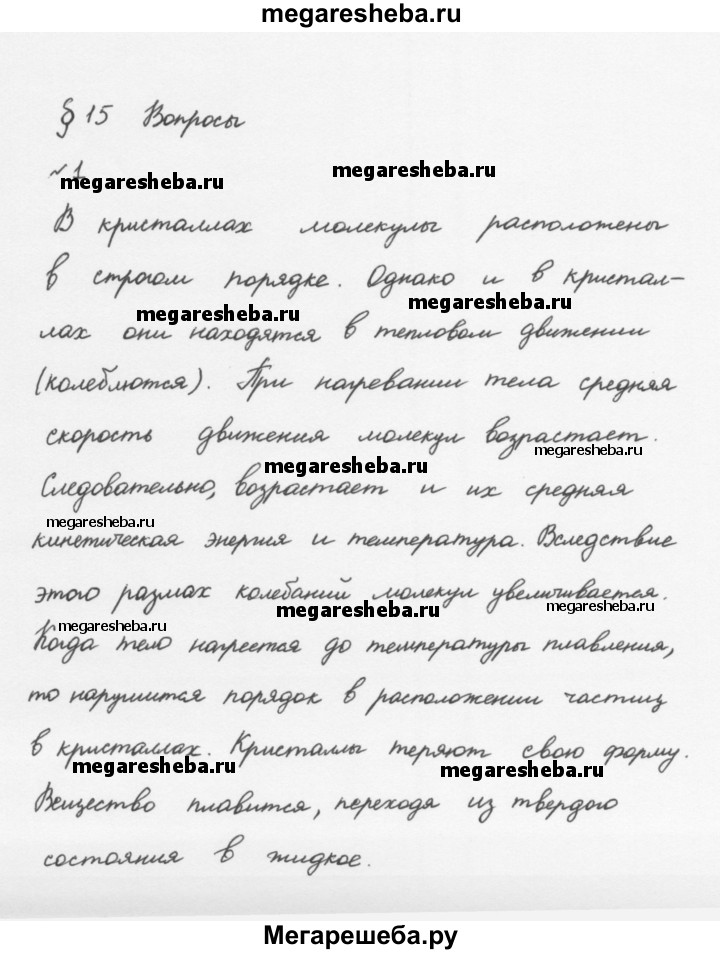 megaresheba.ru
§ 15 Вопросы
megaresheba.ru
№1
megaresheba.ru
В кристаллах молекулы расположены
в строгом порядке. Однако и в кристал-
megaresheba.ru
megaresheba.ru
лах они находятся в тепловом движении
(колеблются). При нагревании тела средняя
скорость движения молекул возрастает.
megaresheba.ru
megaresheba.ru
Следовательно, возрастает и их средняя
megaresheba.ru
кинетическая энергия и температура. Вследствие
этого размах колебаний молекул увеличивается.
megaresheba.ru
megaresheba.ru
megaresheba.ru
Когда тело нагреется до температуры плавления,
то нарушится порядок в расположении частиц
в кристаллах. Кристаллы теряют свою форму.
megaresheba.ru
megaresheba.ru
Вещество плавится, переходя из твердого
состояния в жидкое.
Мегарешеба.ру